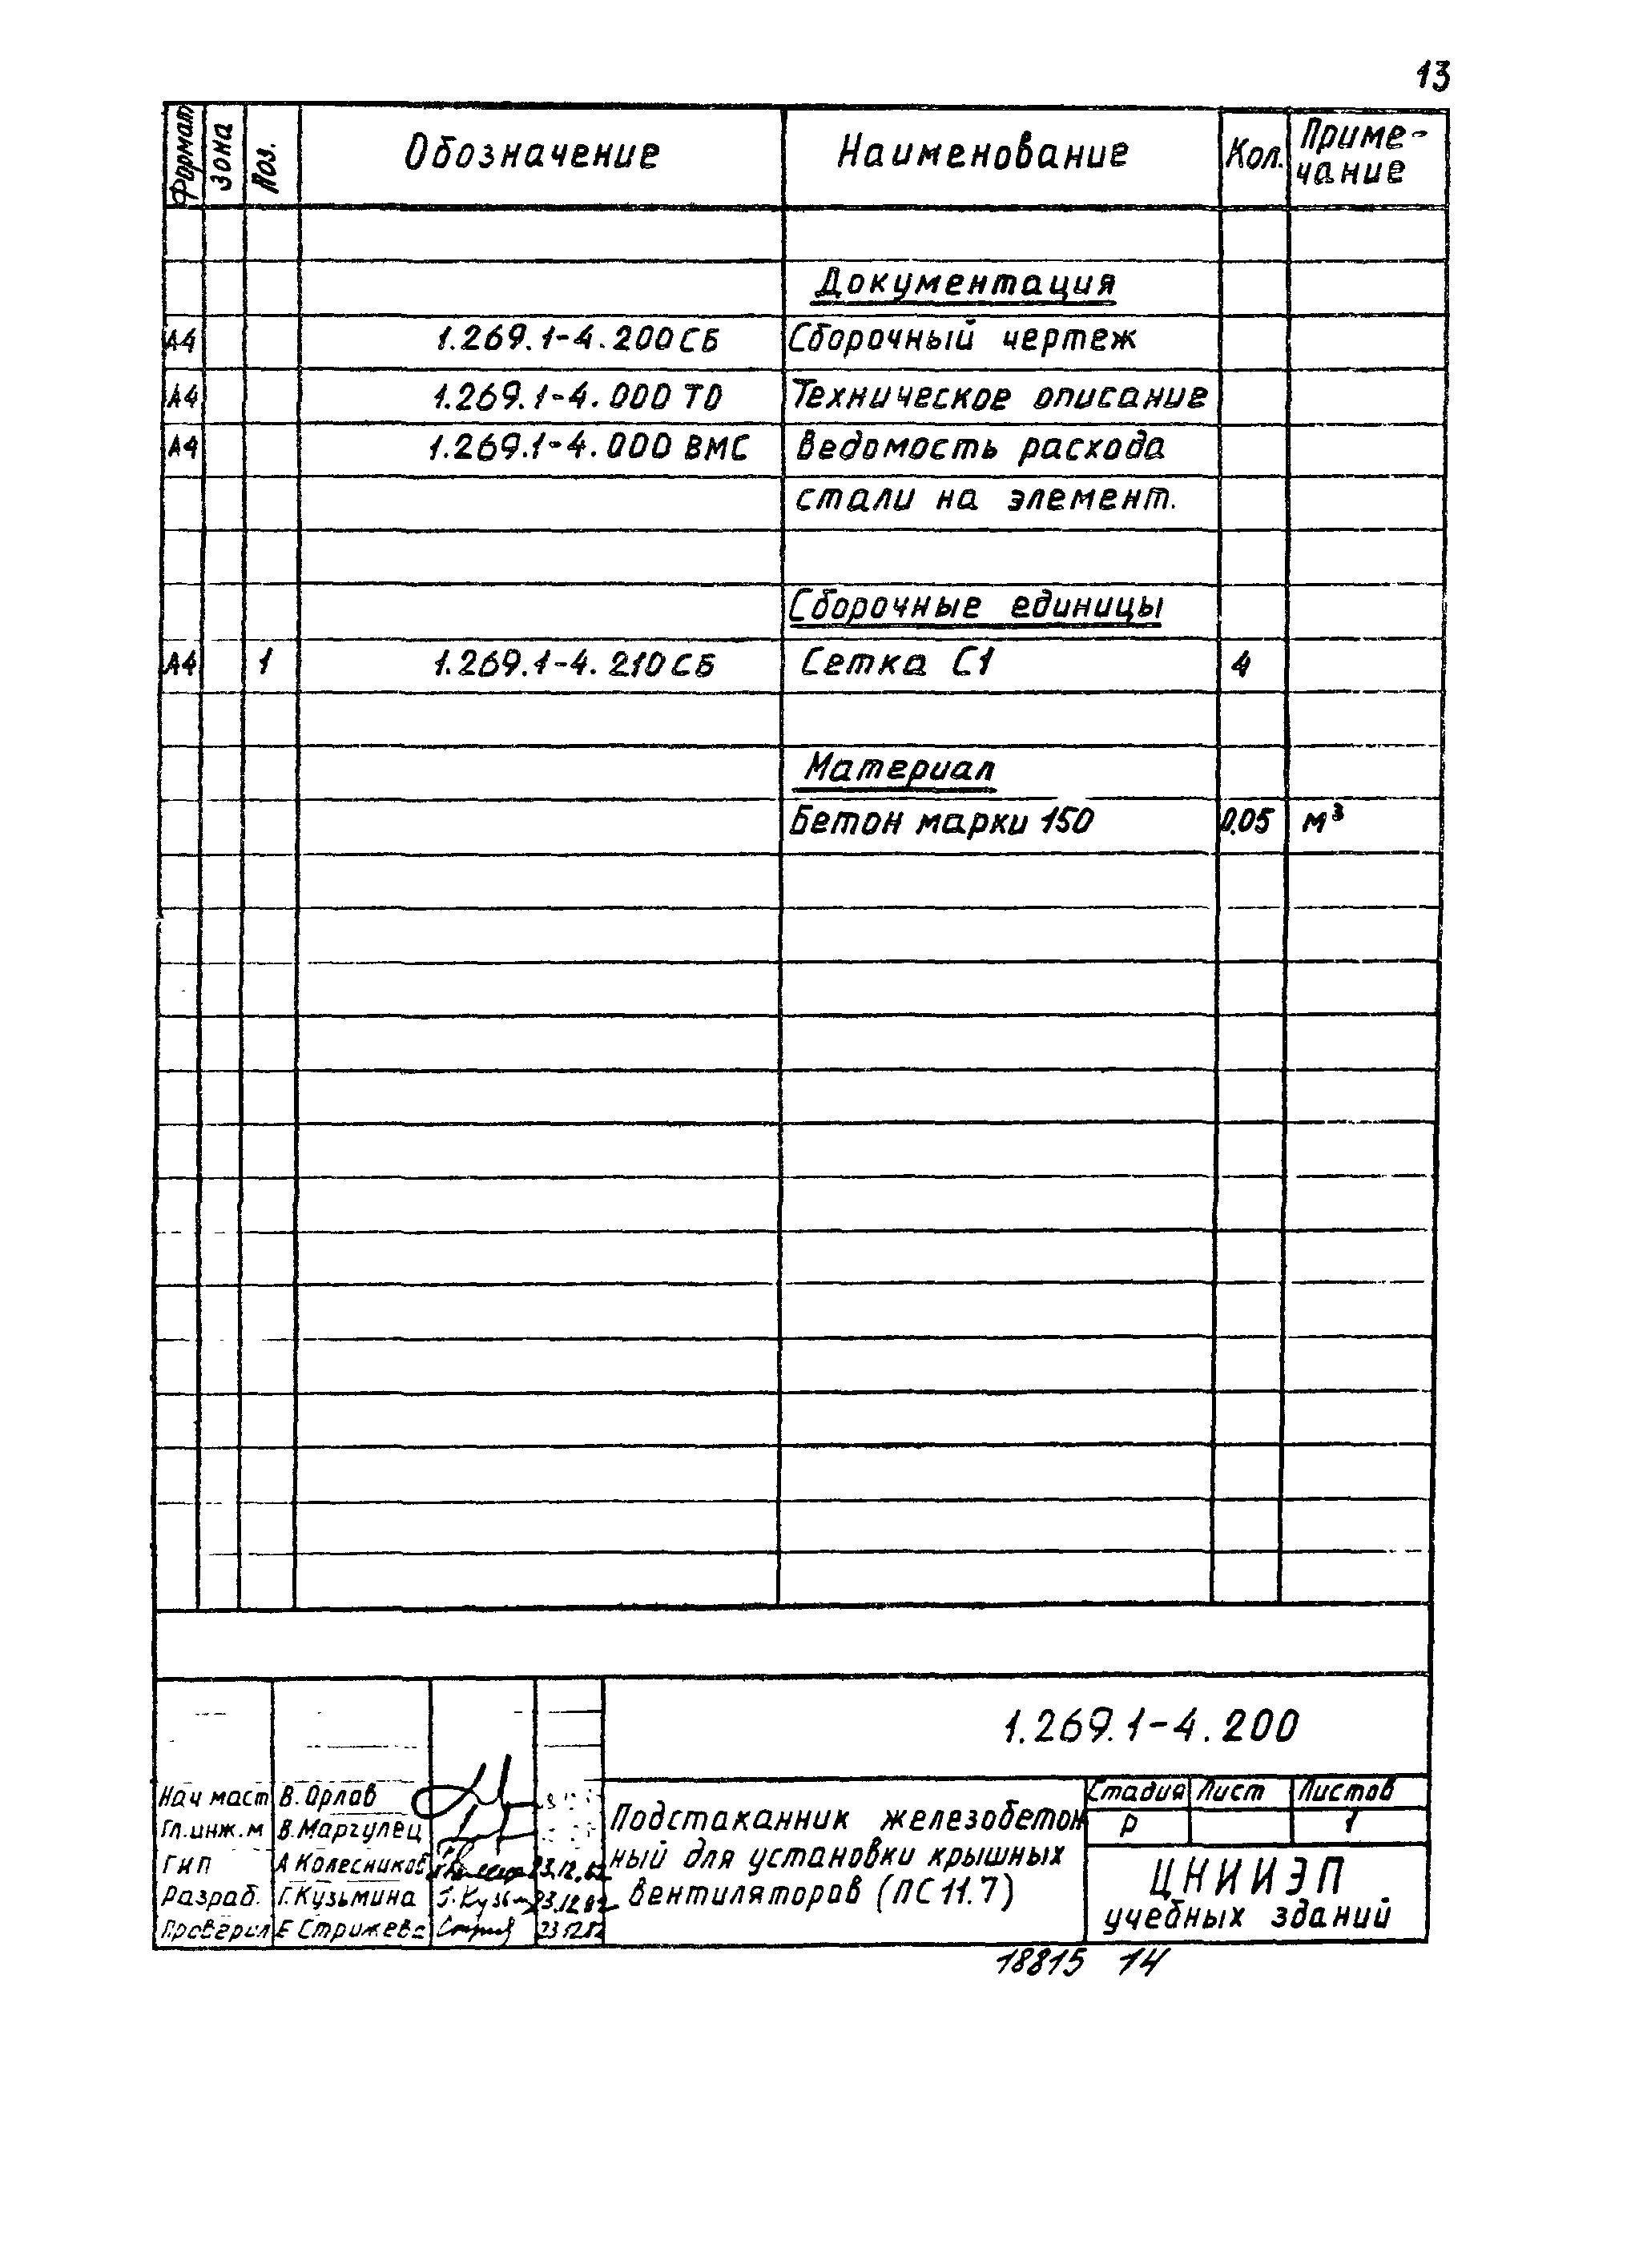 13
Формат Зона Поз. Обозначение Наименование Кол. Приме-
чание
Документация
А4 1.269.1-4.200СБ Сборочный чертеж
А4 1.269.1-4.000 ТО Техническое описание
А4 1.269.1-4.000 ВМС Ведомость расхода
стали на элемент.
Сборочные единицы
А4 1 1.269.1-4.210СБ Сетка С1 4
Материал
Бетон марки 150 0.05 м³
1.269.1-4.200
Нач маст В. Орлов
Гл.инж.м В.Маргулец
ГИП А Колесников 23.12.82
Разраб. Г.Кузьмина Г.Кузьм 23.12.82
Проверил Е Стрижева 23.12.82
Подстаканник железобетон
ный для установки крышных
вентиляторов (ПС 11.7)
Стадия Лист Листов
Р 1
ЦНИИЭП
учебных зданий
18815 14